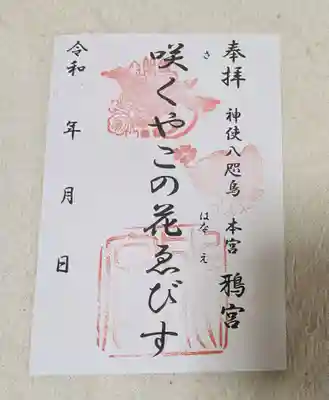 奉拝 神使八咫烏 本宮 鴉宮
咲くやこの花ゑびす
さ
はな
え
令和 年 月 日